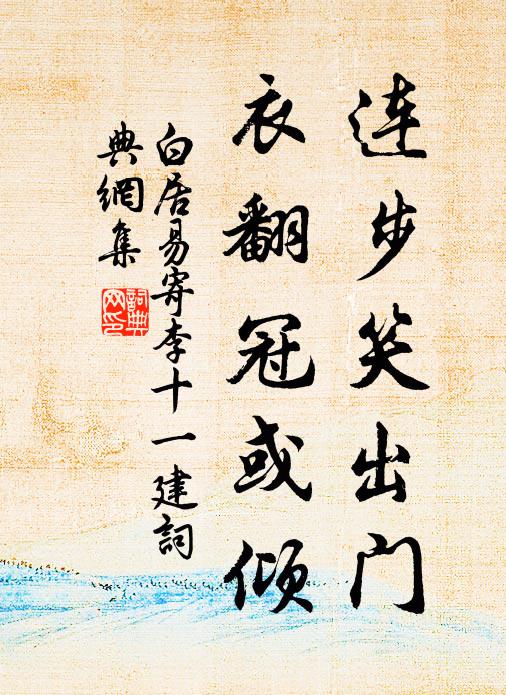 连步笑出门
衣翻冠或倾
白居易寄李十一建词
典網集
詞典
网印